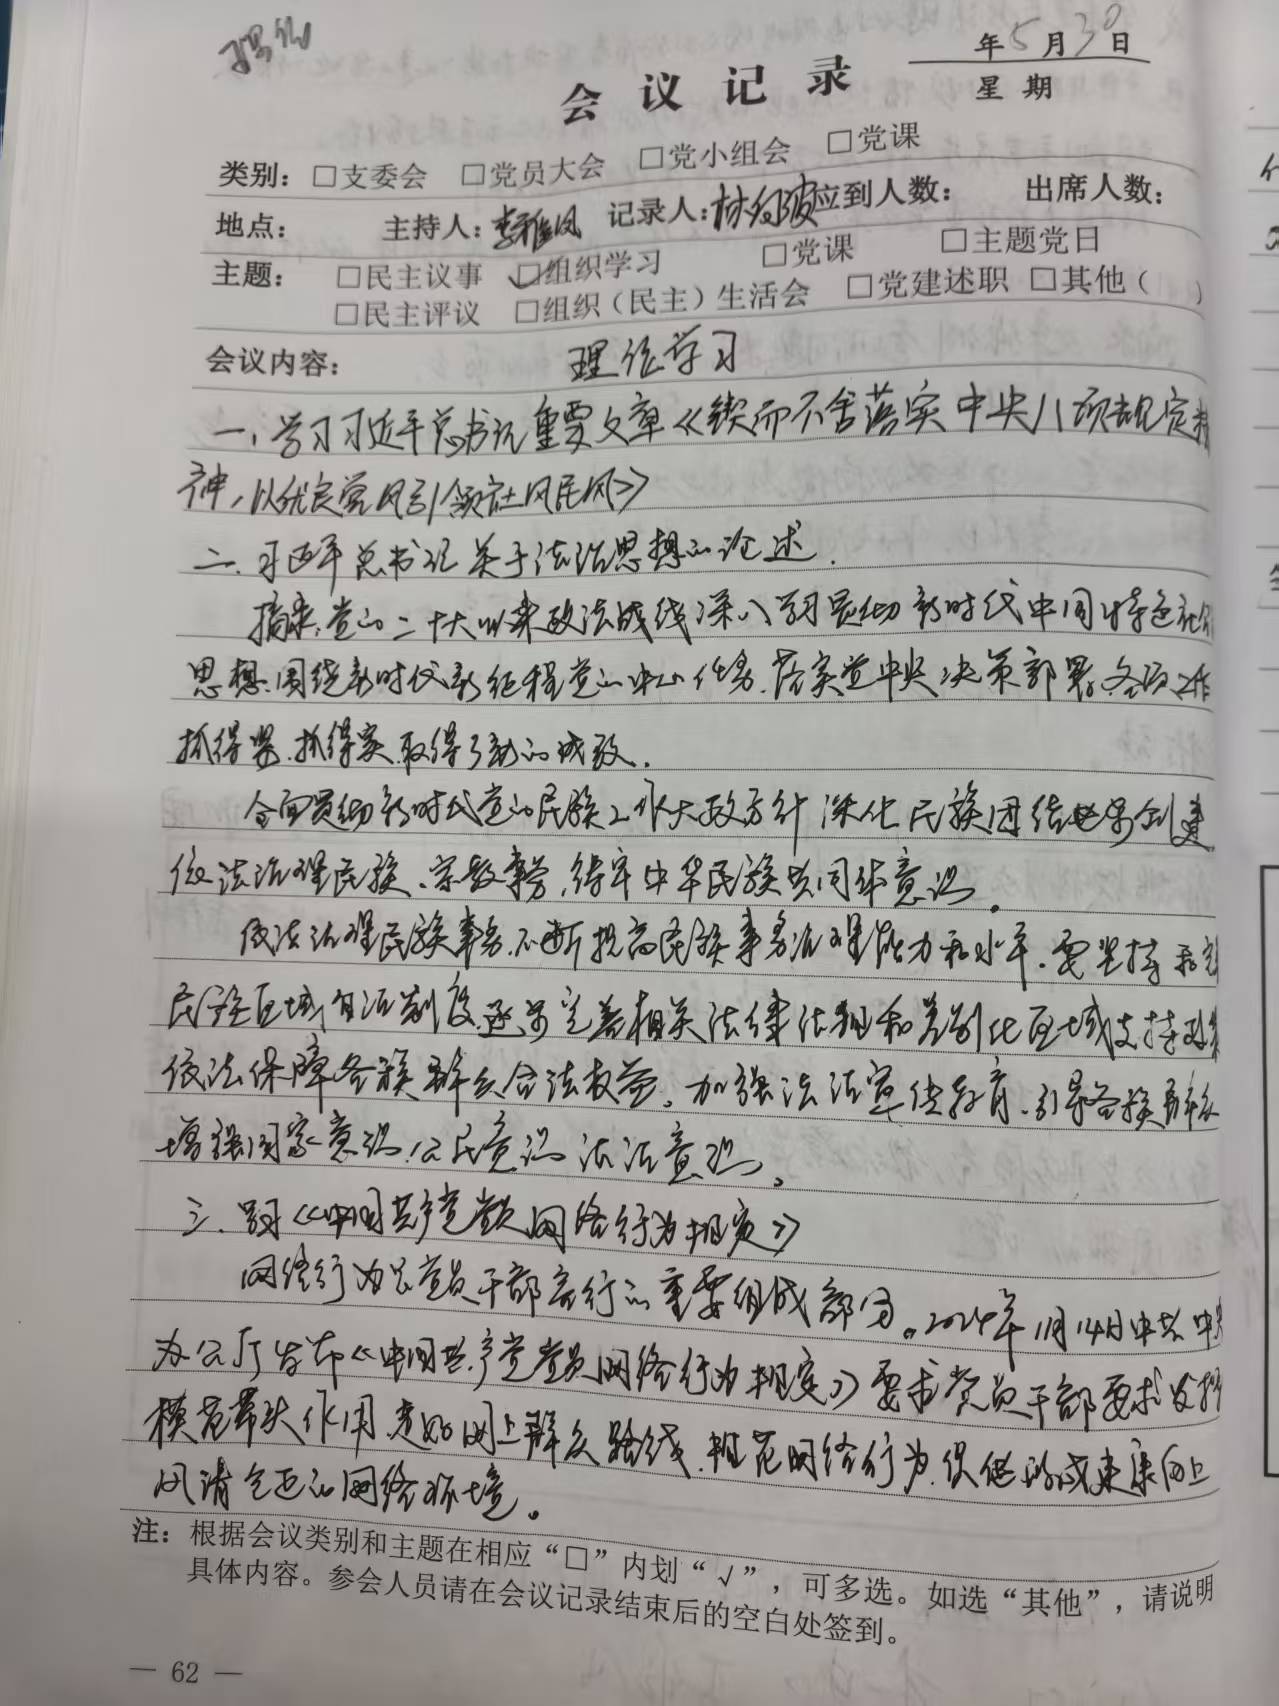 年5月30日
会议记录
星期
类别：□支委会 □党员大会 □党小组会 □党课
地点： 主持人：李雅凤 记录人：林向波 应到人数： 出席人数：
主题： □民主议事 ☑组织学习 □党课 □主题党日
□民主评议 □组织（民主）生活会 □党建述职 □其他（ ）
会议内容： 理论学习
一、学习习近平总书记重要文章《锲而不舍落实中央八项规定精
神，以优良党风引领社风民风》
二、习近平总书记关于法治思想的论述．
摘录：党的二十大以来政法战线深入学习贯彻新时代中国特色社会
思想，围绕新时代新征程党的中心任务，落实党中央决策部署，各项工作
抓得紧、抓得实，取得了新的成效．
全面贯彻新时代党的民族工作大政方针 深化民族团结进步创建
依法治理民族、宗教事务，铸牢中华民族共同体意识。
依法治理民族事务，不断提高民族事务治理能力和水平．要坚持和完
民族区域自治制度，逐步完善相关法律法规和差别化区域支持政策
依法保障各族群众合法权益。加强法治宣传教育，引导各族群众
增强国家意识、公民意识 法治意识。
三、学习《中国共产党党员网络行为规定》
网络行为是党员干部言行的重要组成部分。2024年11月14日中共中央
办公厅发布《中国共产党党员网络行为规定》要求党员干部要求发挥
模范带头作用，走好网上群众路线，规范网络行为，促进形成健康向上
风清气正的网络环境。
注：根据会议类别和主题在相应“□”内划“√”，可多选。如选“其他”，请说明
具体内容。参会人员请在会议记录结束后的空白处签到。
— 62 —